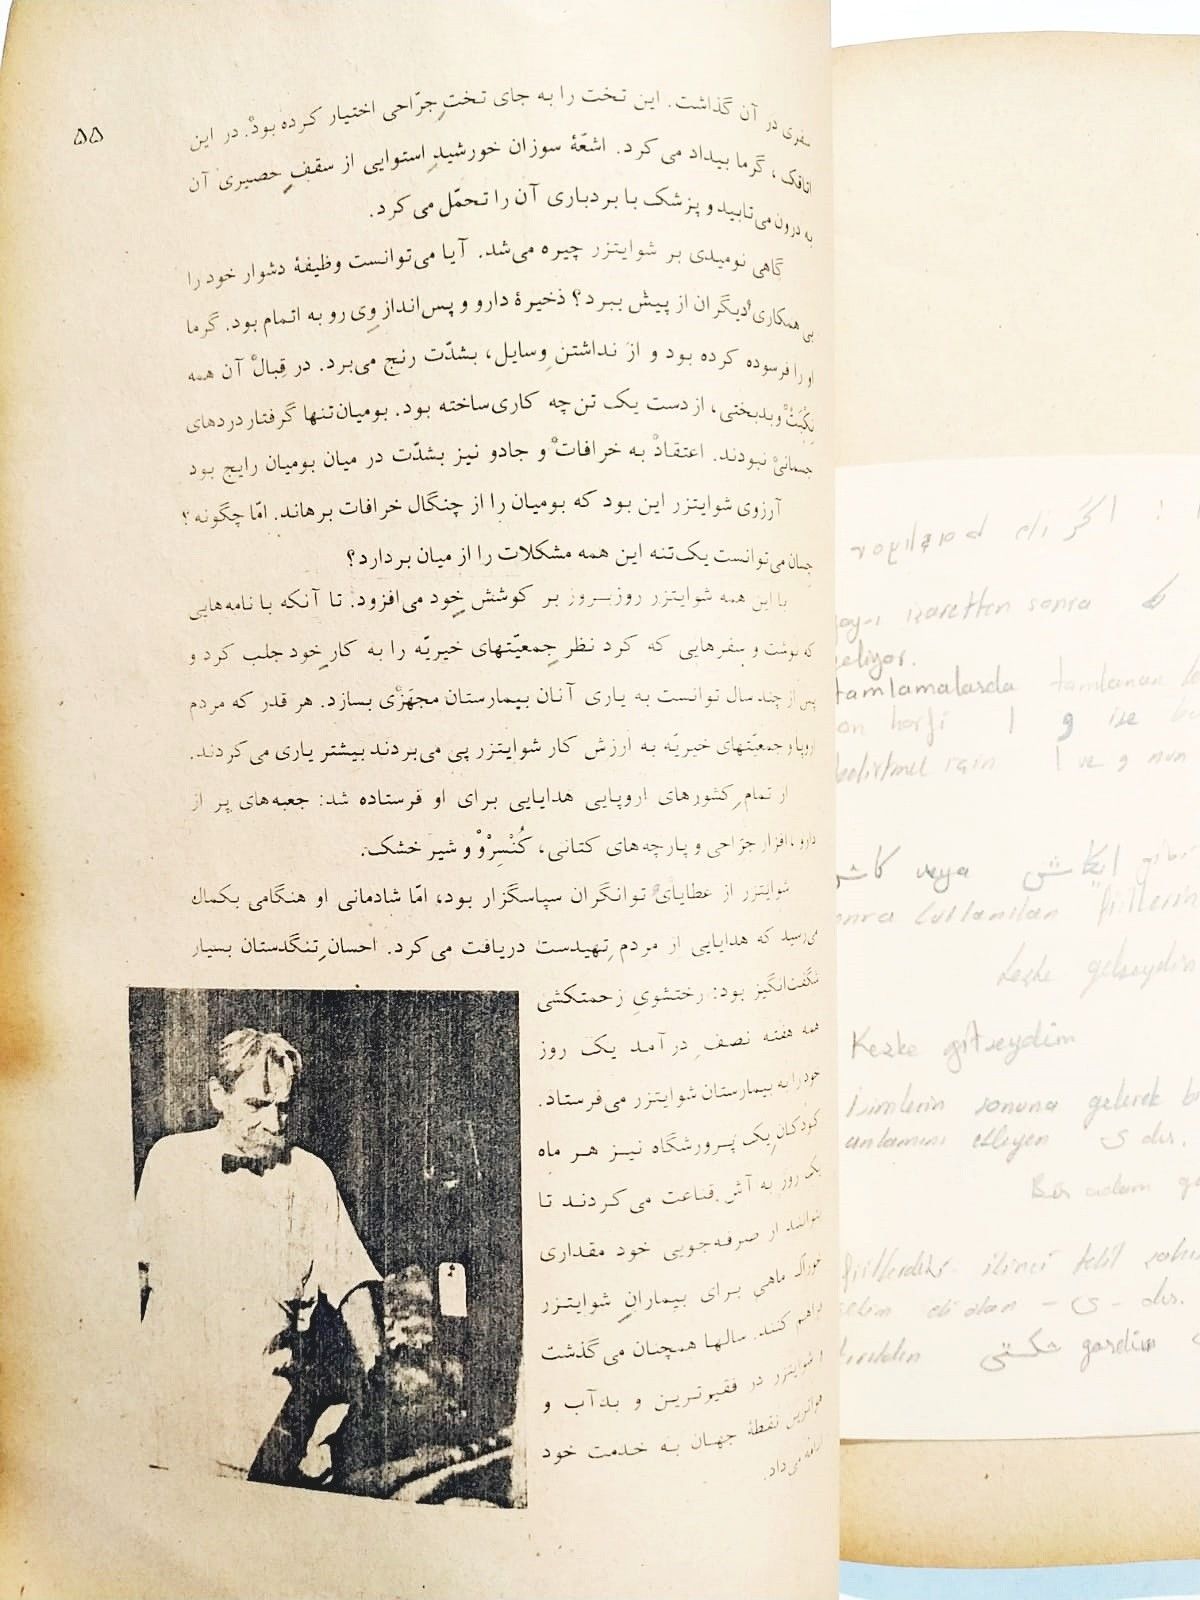 ۵۵
سفری در آن گذاشت. این تخت را به جای تختِ جرّاحی اختیار کرده بود. در این
اتاقک، گرما بیداد می‌کرد. اشعّهٔ سوزان خورشیدِ استوایی از سقفِ حصیری آن
به درون می‌تابید و پزشک با بردباری آن را تحمّل می‌کرد.
گاهی نومیدی بر شوایتزر چیره می‌شد. آیا می‌توانست وظیفهٔ دشوار خود را
بی همکاریِ دیگران از پیش ببرد؟ ذخیرهٔ دارو و پس‌اندازِ وی رو به اتمام بود. گرما
او را فرسوده کرده بود و از نداشتنِ وسایل، بشدّت رنج می‌برد. در قِبالْ آن همه
نِکْبَتْ و بدبختی، از دست یک تن چه کاری ساخته بود. بومیان تنها گرفتار دردهای
جسمانی نبودند. اعتقاد به خرافات و جادو نیز بشدّت در میان بومیان رایج بود
آرزوی شوایتزر این بود که بومیان را از چنگال خرافات برهاند. امّا چگونه؟
چسان می‌توانست یک‌تنه این همه مشکلات را از میان بردارد؟
با این همه شوایتزر روزبروز بر کوشش خود می‌افزود. تا آنکه با نامه‌هایی
که نوشت و سفرهایی که کرد نظر جمعیّتهای خیریّه را به کارِ خود جلب کرد و
پس از چند سال توانست به یاری آنان بیمارستان مجهّزی بسازد. هر قدر که مردم
اروپا و جمعیّتهای خیریّه به ارزش کار شوایتزر پی می‌بردند بیشتر یاری می‌کردند.
از تمامِ کشورهای اروپایی هدایایی برای او فرستاده شد: جعبه‌های پر از
دارو، افزار جرّاحی و پارچه‌های کتانی، کُنْسِرْوْ و شیر خشک.
شوایتزر از عطایای توانگران سپاسگزار بود، امّا شادمانی او هنگامی بکمال
می‌رسید که هدایایی از مردمِ تهیدست دریافت می‌کرد. احسانِ تنگدستان بسیار
شگفت‌انگیز بود: رختشویِ زحمتکشی
همه هفته نصفِ درآمد یک روز
خود را به بیمارستان شوایتزر می‌فرستاد.
کودکانِ یک پرورشگاه نیز هر ماه
یک روز به آش قناعت می‌کردند تا
بتوانند از صرفه‌جویی خود مقداری
خوراک ماهی برای بیمارانِ شوایتزر
فراهم کنند. سالها همچنان می‌گذشت
و شوایتزر در فقیرترین و بدآب و
هواترین نقطهٔ جهان به خدمت خود
ادامه می‌داد.
اگر
işaretten sonra که
geliyor.
tamlamalarda tamlanan
son harfi ا و ise
belirtmek için ا ve و nun
کاش veya ایکاش
sonra kullanılan fiillerin
keşke gelseydim
Keşke gitseydim
isimlerin sonuna gelerek
anlamını ekleyen ی dır.
Bir adam
fiillerdeki ikinci tekil
- ی - dır.
شکستی gördün